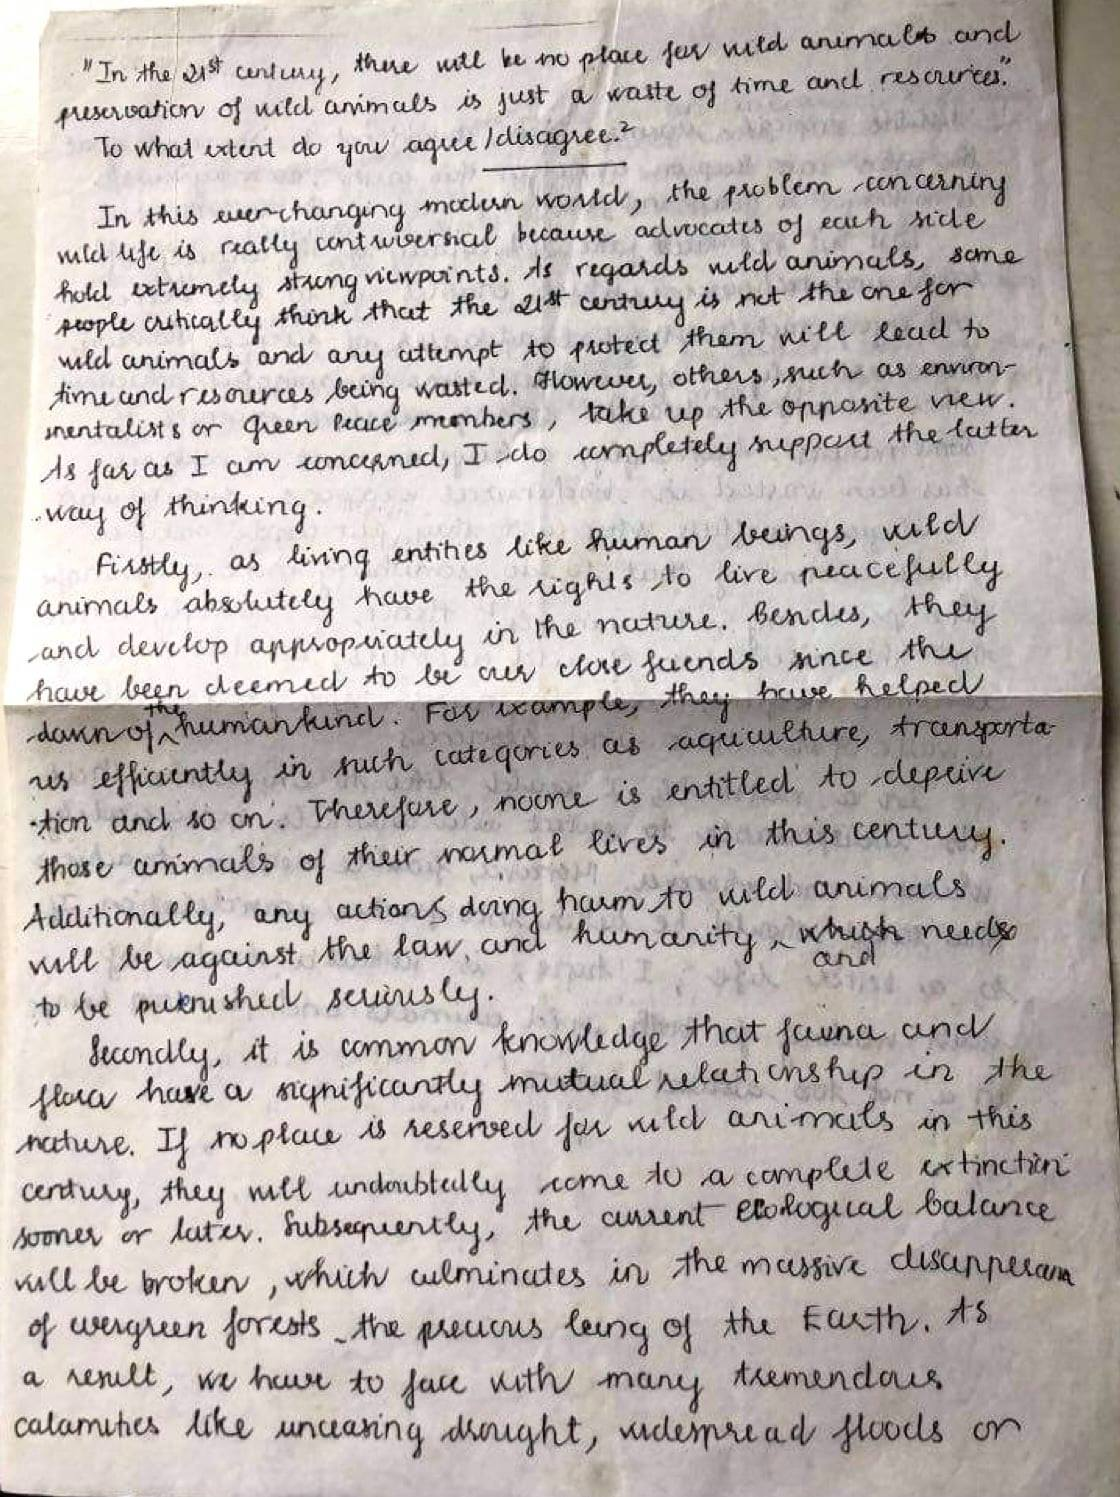 "In the 21st century, there will be no place for wild animals and
preservation of wild animals is just a waste of time and resources".
To what extent do you agree/disagree.?
In this ever-changing modern world, the problem concerning
wild life is really controversial because advocates of each side
hold extremely strong viewpoints. As regards wild animals, some
people critically think that the 21st century is not the one for
wild animals and any attempt to protect them will lead to
time and resources being wasted. However, others, such as environ-
mentalists or Green Peace members, take up the opposite view.
As far as I am concerned, I do completely support the latter
way of thinking.
Firstly, as living entities like human beings, wild
animals absolutely have the rights to live peacefully
and develop appropriately in the nature. Besides, they
have been deemed to be our close friends since the
dawn of the humankind. For example, they have helped
us efficiently in such categories as agriculture, transporta-
-tion and so on. Therefore, noone is entitled to deprive
those animals of their normal lives in this century.
Additionally, any actions doing harm to wild animals
will be against the law and humanity, which needs
and
to be punished seriously.
Secondly, it is common knowledge that fauna and
flora have a significantly mutual relationship in the
nature. If no place is reserved for wild animals in this
century, they will undoubtedly come to a complete extinction
sooner or later. Subsequently, the current ecological balance
will be broken, which culminates in the massive
of evergreen forests _ the precious lung of the Earth. As
a result, we have to face with many tremendous
calamities like unceasing drought, widespread floods or